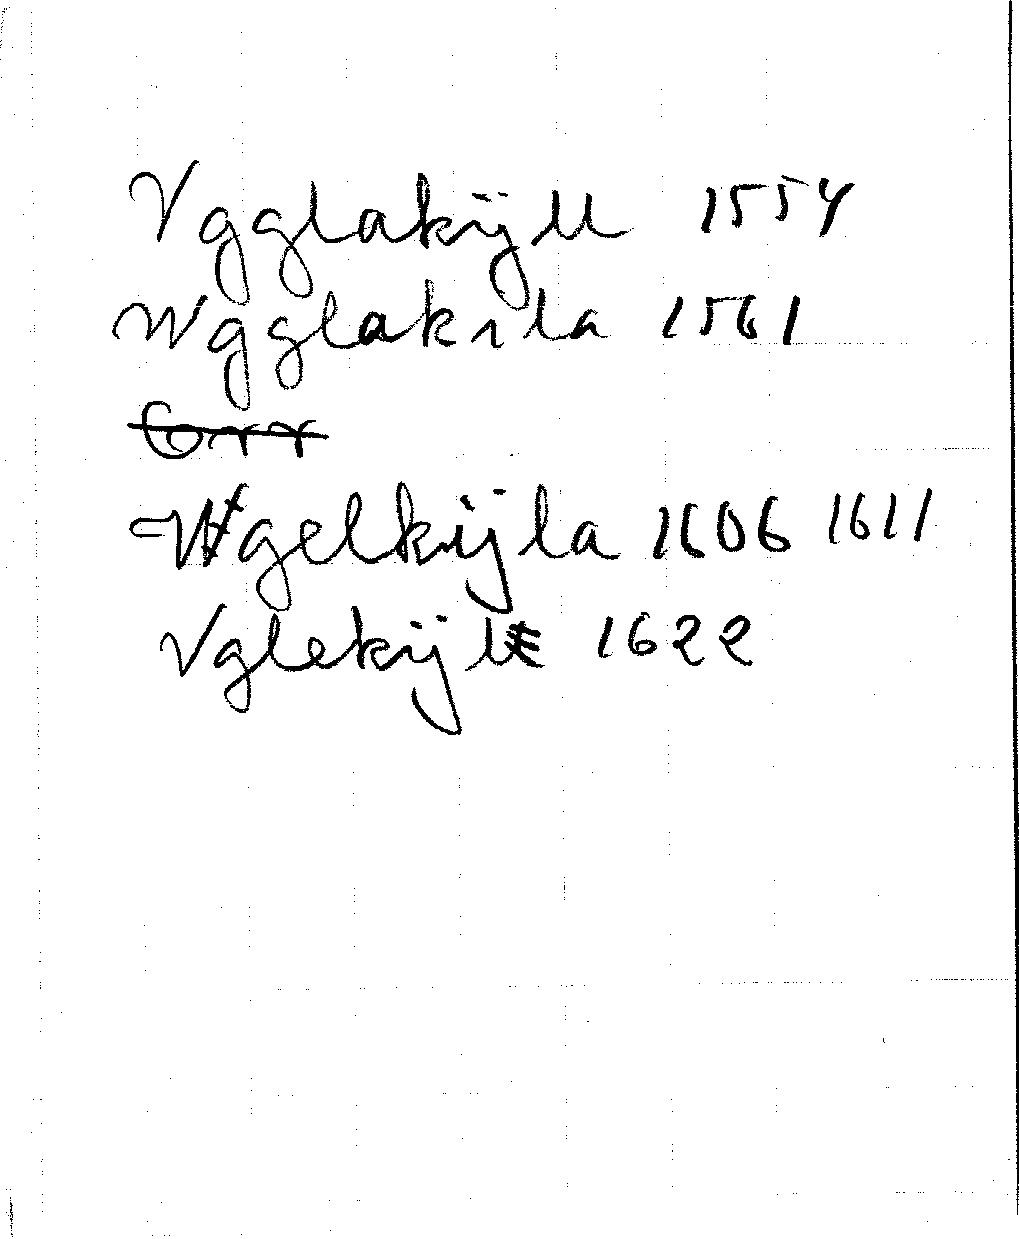 Vgglakÿll 1554
Wgglakila 1561
Wgelkijla 1606 1611
Vglekijle 1622